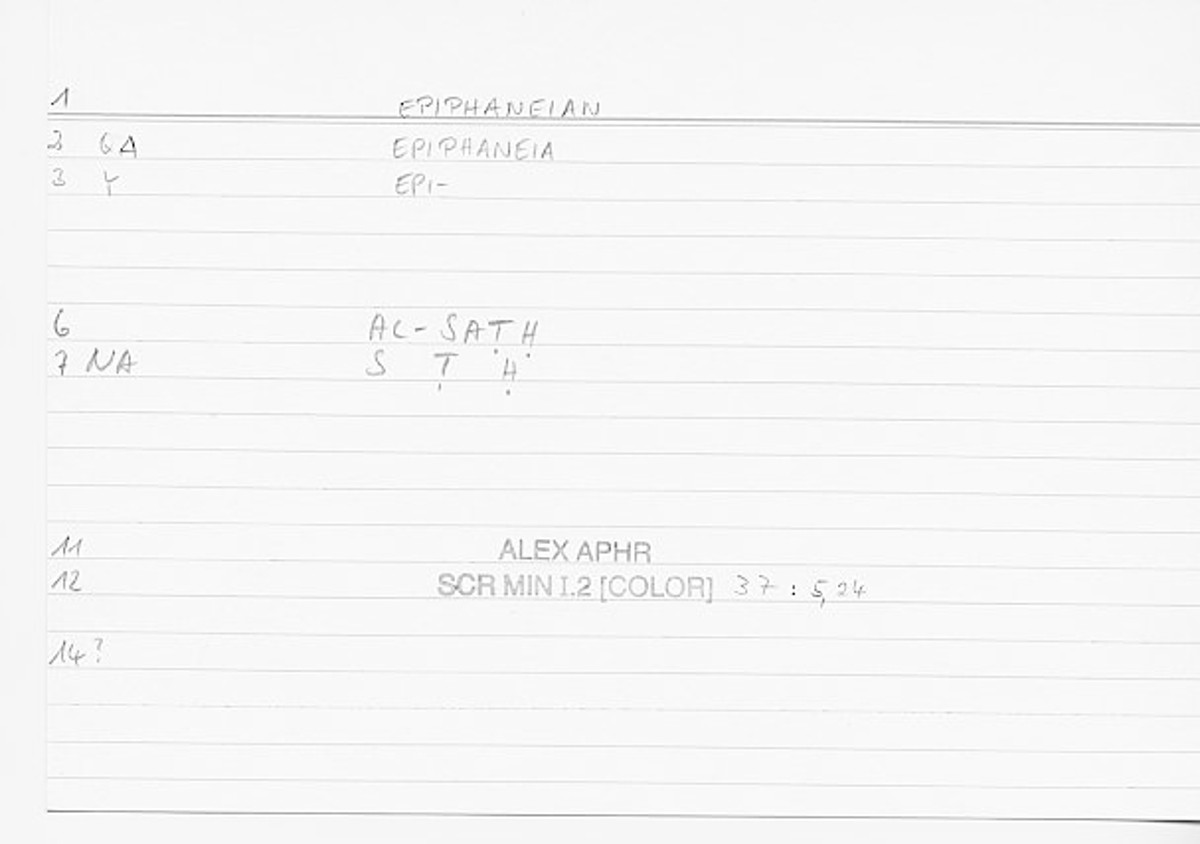 1 EPIPHANEIAN
2 GA EPIPHANEIA
3 Y EPI-
6 AL-SAṬḤ
7 NA S Ṭ Ḥ
11 ALEX APHR
12 SCR MIN I.2 [COLOR] 37 : 5,24
14?